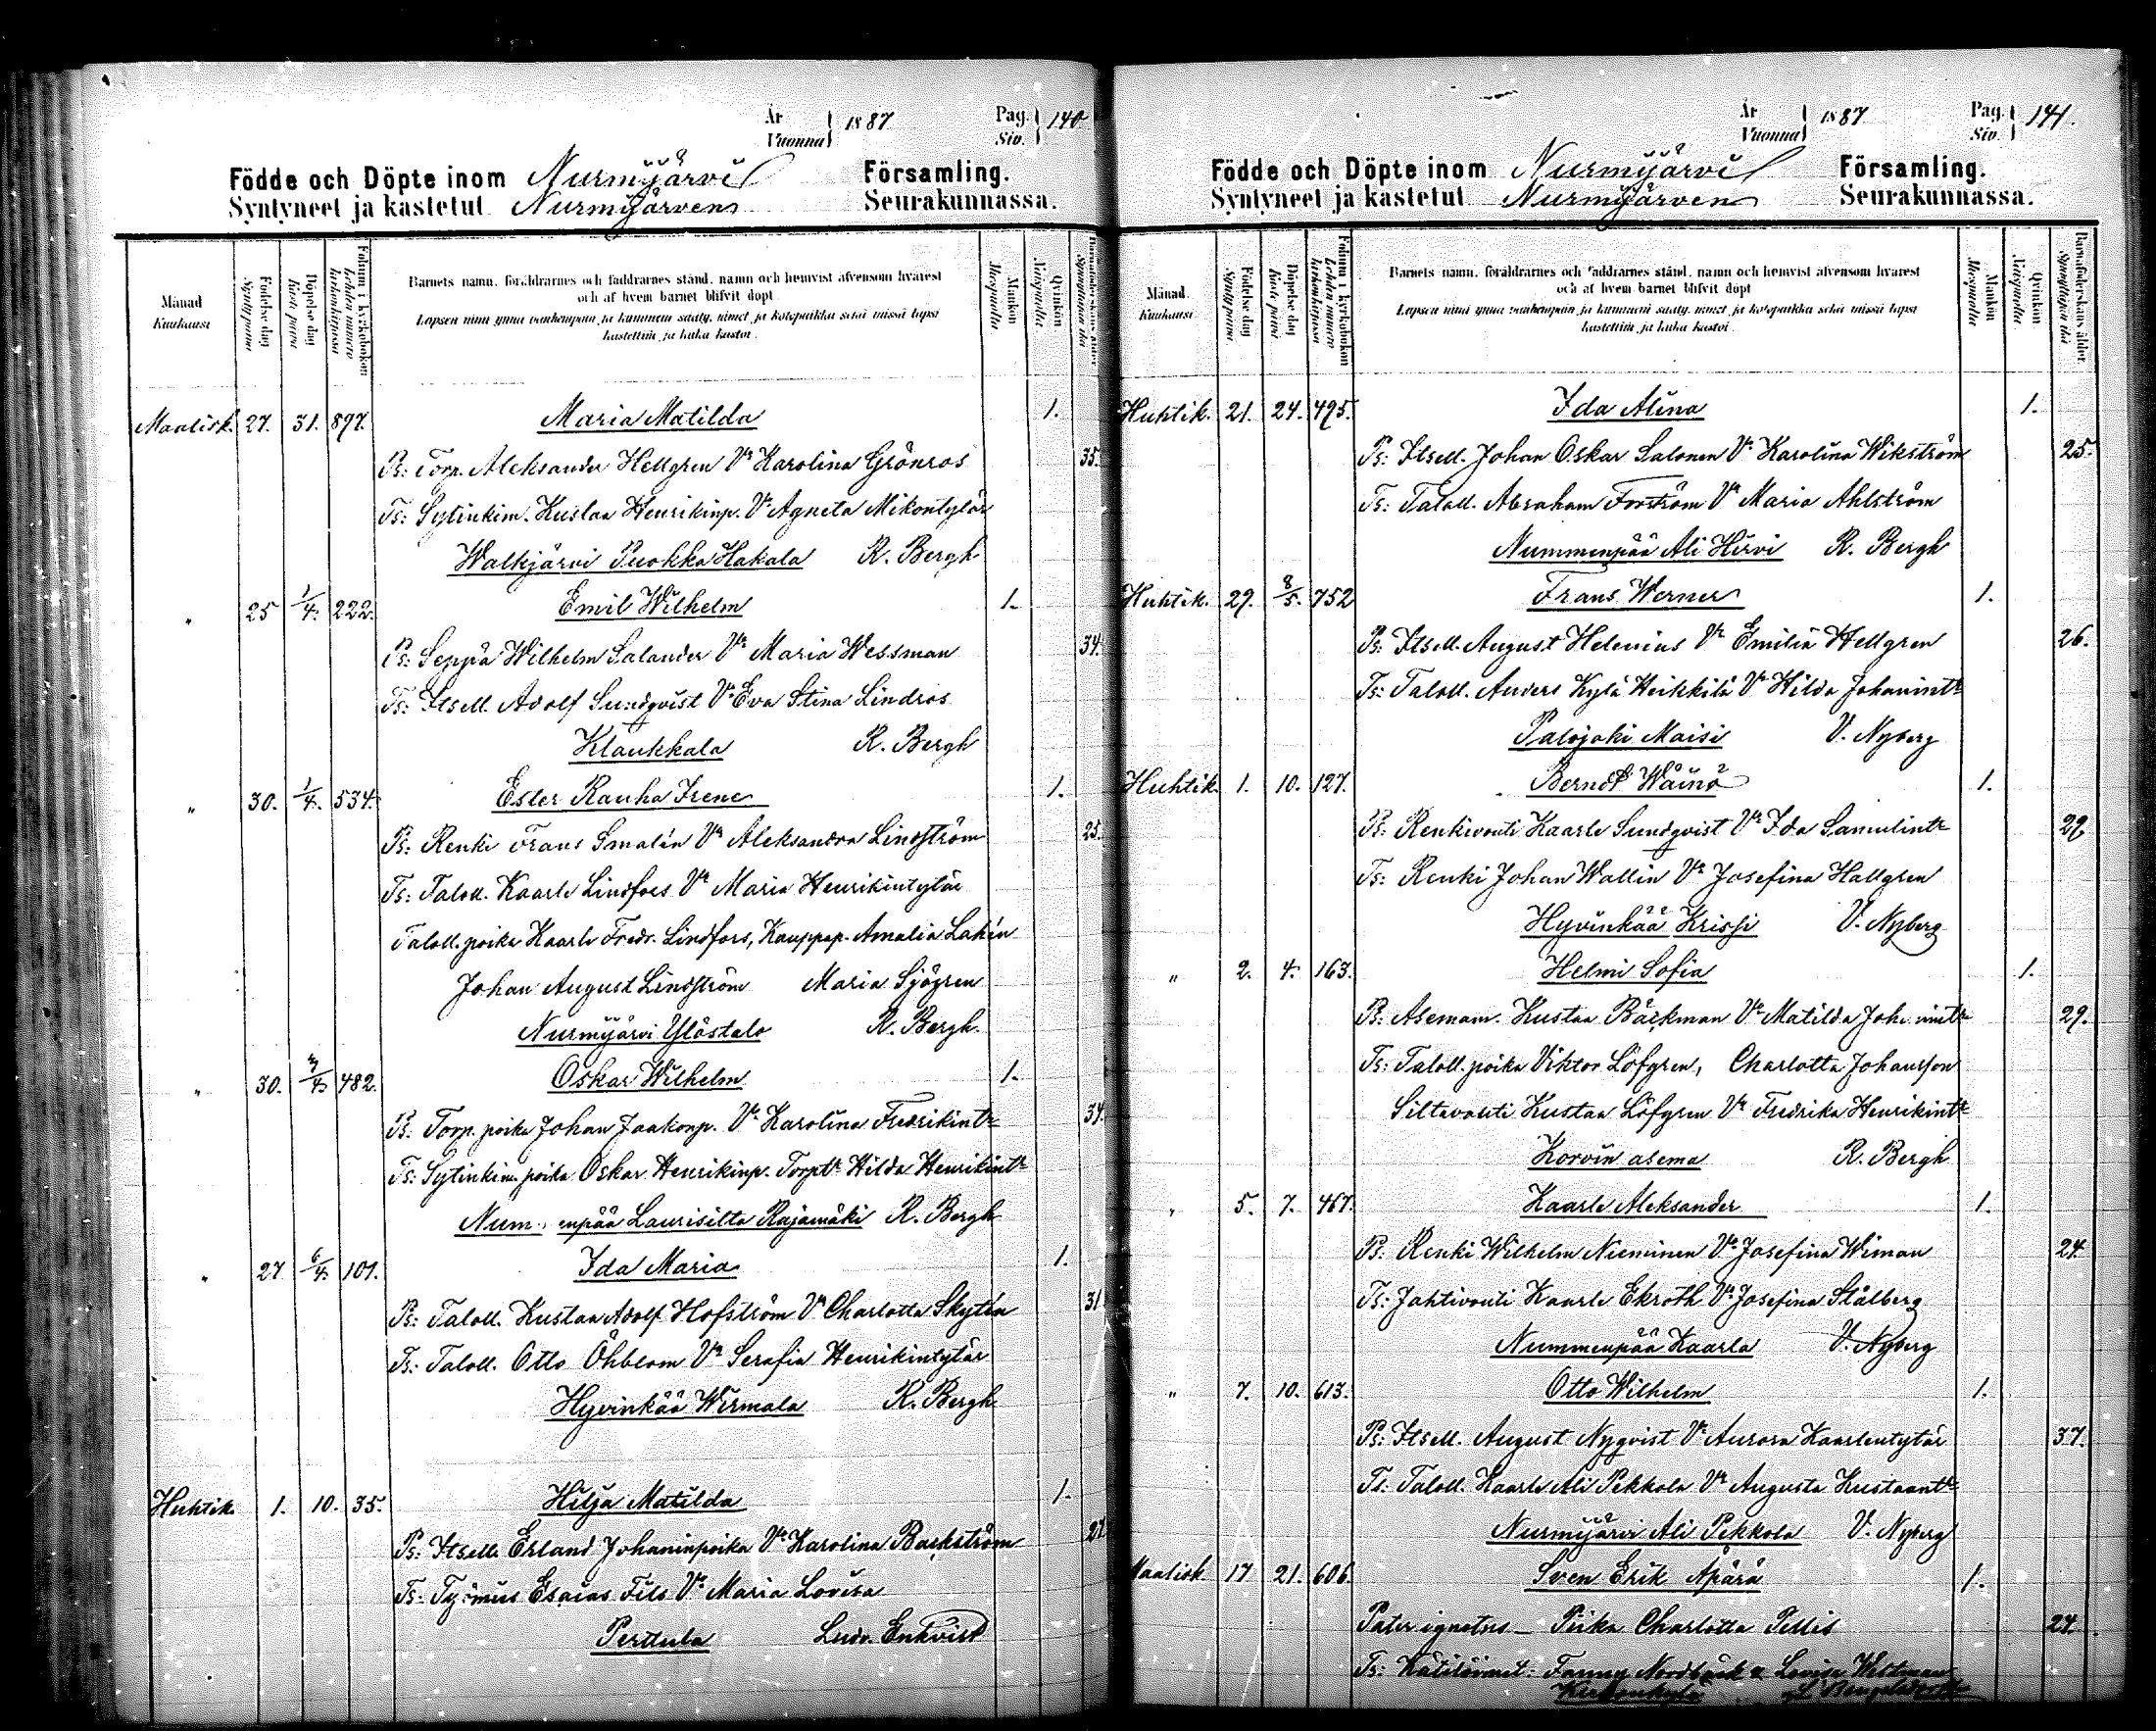 År Vuonna 1887 Pag. Siv. 140
Födde och Döpte inom Nurmijärvi Församling.
Syntyneet ja kastetut Nurmijärven Seurakunnassa.
Månad Kuukausi
Födelse dag Syntypäivä
Döpelse dag Kastepäivä
Folium i kyrkoboken Lehden numero kirkonkirjassa
Barnets namn, föräldrarnes och faddrarnes stånd, namn och hemvist äfvensom hvarest
och af hvem barnet blifvit döpt
Lapsen nimi ynnä vanhempain ja kummein sääty, nimet ja kotopaikka sekä missä lapsi
kastettiin ja kuka kastoi.
Mankön Miespuolia
Qvinkön Naispuolia
Maalisk. 27. 31. 897. Maria Matilda 1.
Ps: Torp. Aleksander Hellgren Vo Karolina Grönros 35.
Ts: Sytinkim. Kustaa Henrikinp. Vo Agneta Mikontytär
Walkjärvi Puokka Hakala R. Bergh
" 25 1/4. 222. Emil Wilhelm 1.
Ps: Seppä Wilhelm Salander Vo Maria Wessman 34.
Ts: Itsell. Adolf Sundqvist Vo Eva Stina Lindros
Klaukkala R. Bergh
" 30. 1/4. 534. Ester Rauha Irene 1.
Ps: Renki Frans Smalén Vo Aleksandra Lindström 25.
Ts: Taloll. Kaarle Lindfors Vo Maria Henrikintytär
Taloll. poika Kaarle Fredr. Lindfors, Kauppap. Amalia Lahén
Johan August Lindström Maria Sjögren
Nurmijärvi Ylöstalo R. Bergh.
" 30. 3/4. 482. Oskar Wilhelm 1.
Ps: Torp. poika Johan Jaakonp. Vo Karolina Fredrikintr 34.
Ts: Sytinkim. poika Oskar Henrikinp. Torptr Hilda Henrikintr
Nummenpää Laurisilta Rajamäki R. Bergh
" 27 6/4. 101. Ida Maria 1.
Ps: Taloll. Kustaa Adolf Hofström Vo Charlotta Skytén 31
Ts: Taloll. Otto Öhblom Vo Serafia Henrikintytär
Hyvinkää Wermala R. Bergh
Huhtik. 1. 10. 35. Hilja Matilda 1.
Ps: Itsell. Erland Johaninpoika Vo Karolina Backström
Ts: Esaias Fils Vo Maria Lovisa
Perttula Ludv. Enkvist
År Vuonna 1887 Pag. Siv. 141.
Födde och Döpte inom Nurmijärvi Församling.
Syntyneet ja kastetut Nurmijärven Seurakunnassa.
Månad Kuukausi
Födelse dag Syntypäivä
Döpelse dag Kaste päivä
Folium i kyrkoboken Lehden numero kirkonkirjassa
Barnets namn, föräldrarnes och faddrarnes stånd, namn och hemvist äfvensom hvarest
och af hvem barnet blifvit döpt
Lapsen nimi ynnä vanhempain ja kummein sääty, nimet ja kotopaikka sekä missä lapsi
kastettiin ja kuka kastoi.
Mankön Miespuolia
Qvinkön Naispuolia
Barnaföderskans ålder. Synnyttäjän ikä
Huhtik. 21. 24. 495. Ida Alina 1.
Ps: Itsell. Johan Oskar Salonen Vo Karolina Wikström 25.
Ts: Taloll. Abraham Forström Vo Maria Ahlström
Nummenpää Ali Hirvi R. Bergh
Huhtik. 29. 8/5. 752 Frans Werner 1.
Ps: Itsell. August Helenius Vo Emilia Hellgren 26.
Ts: Taloll. Anders Kylä Heikkilä Vo Hilda Johanintr
Palojoki Maisi V. Nyberg
Huhtik. 1. 10. 127. Berndt Wäinö 1.
Ps: Renkivouti Kaarle Sundqvist Vo Ida Samulintr 29.
Ts: Renki Johan Wallin Vo Josefina Hallgren
Hyvinkää Krissi V. Nyberg
" 2. 4. 163. Helmi Sofia 1.
Ps: Asemam. Kustaa Bäckman Vo Matilda Johanintr 29.
Ts: Taloll. poika Viktor Löfgren, Charlotta Johansson
Siltavouti Kustaa Löfgren Vo Fredrika Henrikintr
Korvin asema R. Bergh
" 5. 7. 467. Kaarle Aleksander 1.
Ps: Renki Wilhelm Nieminen Vo Josefina Wiman 24.
Ts: Jahtivouti Kaarle Ekroth Vo Josefina Stålberg
Nummenpää Kaarla V. Nyberg
" 7. 10. 613. Otto Wilhelm 1.
Ps: Itsell. August Nyqvist Vo Aurora Kaarlentytär 37.
Ts: Taloll. Kaarle Ali Pekkola Vo Augusta Kustaantr
Nurmijärvi Ali Pekkola V. Nyberg
Maalisk. 17 21. 606. Sven Erik Äpärä 1.
Pater ignotus – Piika Charlotta Tellis 24.
Ts: Kätilöimet: Fanny Nordbäck & Lovisa Westman